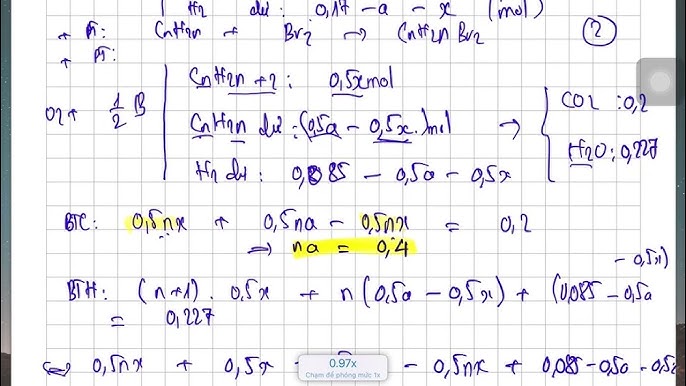 H2 dư: 0,17 - a - x (mol)
+ Pt: CnH2n + Br2 → CnH2nBr2 (2)
+ Pt:
O2 + 1/2 B
CnH2n+2: 0,5x mol
CnH2n dư: (0,5a - 0,5x) mol
H2 dư: 0,085 - 0,5a - 0,5x
→ CO2: 0,2
H2O: 0,227
BTC: 0,5nx + 0,5na - 0,5nx = 0,2
→ na = 0,4
BTH: (n+1). 0,5x + n(0,5a - 0,5x) + (0,085 - 0,5a - 0,5x)
= 0,227
⇔ 0,5nx + 0,5x - 0,5nx + 0,085 - 0,5a - 0,5x
0.97x
Chạm để phóng mức 1x